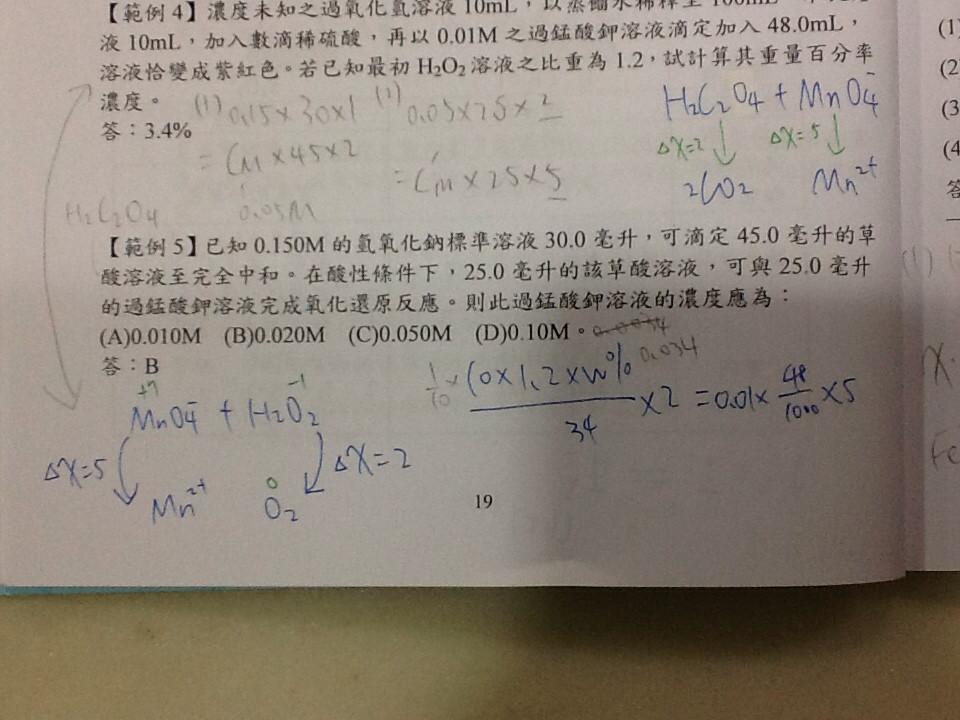 【範例 4】濃度未知之過氧化氫溶液 10mL，以蒸餾水稀釋至 100mL
液 10mL，加入數滴稀硫酸，再以 0.01M 之過錳酸鉀溶液滴定加入 48.0mL，
溶液恰變成紫紅色。若已知最初 H₂O₂ 溶液之比重為 1.2，試計算其重量百分率
濃度。
答：3.4%
(1) 0.15×30×1
= CM×45×2
0.05M
H₂C₂O₄
0.05×25×2
= CM'×25×5
H₂C₂O₄ + MnO₄⁻
ΔX=2 ΔX=5
2CO₂ Mn²⁺
【範例 5】已知 0.150M 的氫氧化鈉標準溶液 30.0 毫升，可滴定 45.0 毫升的草
酸溶液至完全中和。在酸性條件下，25.0 毫升的該草酸溶液，可與 25.0 毫升
的過錳酸鉀溶液完成氧化還原反應。則此過錳酸鉀溶液的濃度應為：
(A)0.010M (B)0.020M (C)0.050M (D)0.10M。
答：B
0.034
+7 -1
MnO₄⁻ + H₂O₂
ΔX=5 ΔX=2
Mn²⁺ 0 O₂
1/10 × (10×1.2×W%)/34 ×2 = 0.01× 48/1000 ×5
19
(1)
(2
(3
(4
答
(1)
X.
Fe